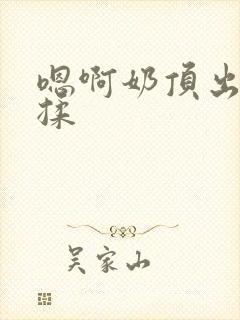 嗯啊奶頂出
揉
吴家山